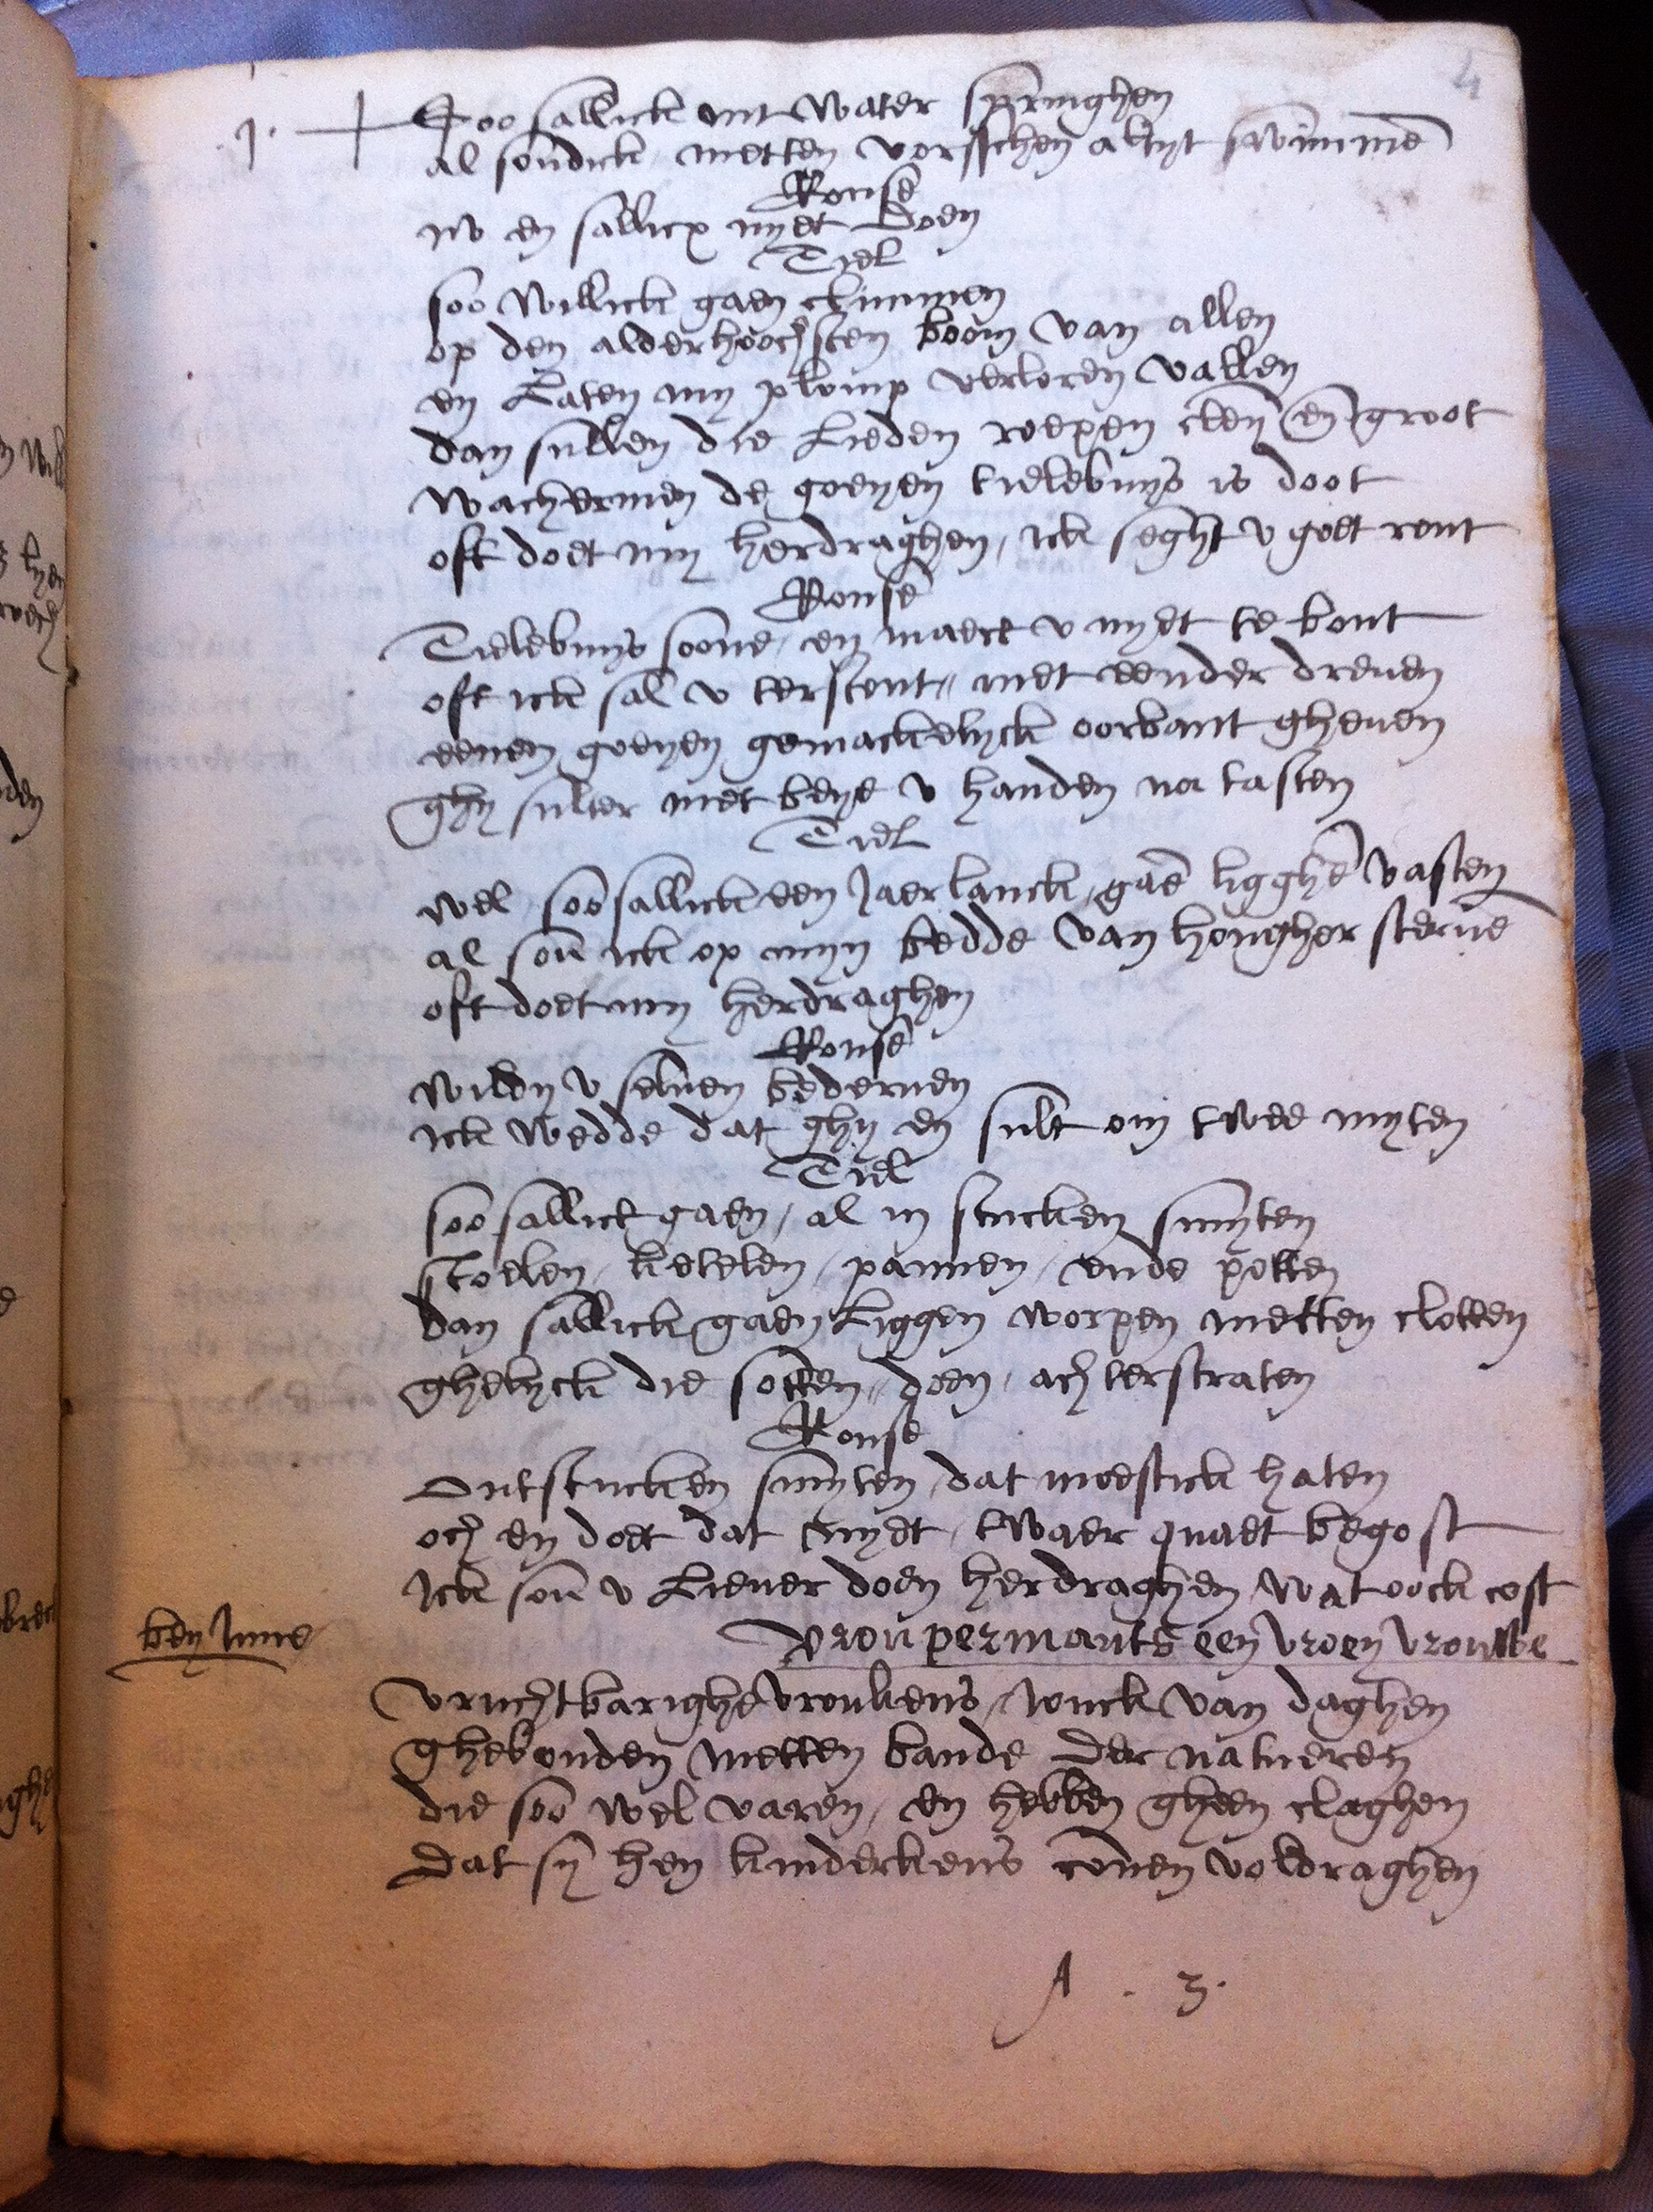 4
j. Soo sallick int water springhen
al soudick metten vorsschen altyt swimmē
Rouse
nv en sallicx nyet doen
Tiel
soo willick gaen climmen
op den alderhoochsten boom van allen
en Laten my plomp verloren vallen
dan sullen die Lieden roepen cleyn en groot
wachermen de goeyen tielebuys is doot
oft doet my herdraghen, ick seght v goet ront
Rouse
Tielebuys soone, en maect v nyet te bont
oft ick sal v terstont, met eender dreuen
eenen goeyen gemackelyck oorbant gheuen
ghy sulter met beye v handen na tasten
Tiel
wel, soo sallick een Jaer lanck, gaē ligghē vasten
al sou ick op myn bedde van hongher steruē
oft doet my herdraghen
Rouse
wildy v seluen bederuen
ick wedde dat ghy en sult om twee myten
Tiel
soo sallick gaen, al in stucken smyten
stoelen, ketelen, pannen, ende potten
dan sallick gaen Liggen worpen metten clotten
ghelyck die sotten, doen, achterstraten
Rouse
Ontstucken smyten, dat moestick haten
och en doet dat nyet, twaer quaet begost
Ick sou v Lieuer doen herdraghen wat oock cost
vrou permants een vroey vrouwe
ben Inne
vruchtbarighe vroukens, Jonck van daghen
ghebonden metten bande der natueren
die soo wel varen, en hebben gheen claghen
Dat sy hen kinderkens connen voldraghen
A . 3.